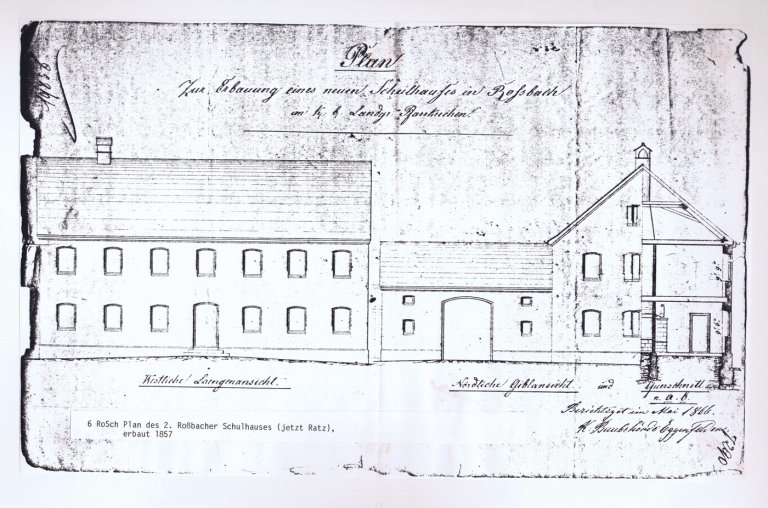 Plan
Zur Erbauung eines neuen Schulhauses in Rossbach
im K. b. Landg.
Westliche Laengenansicht.
Nördliche Giblansicht und Querschnitt
n. a. b.
Berichtiget im Mai 1866.
Eggenfelden
6 RoSch Plan des 2. Roßbacher Schulhauses (jetzt Ratz),
erbaut 1857